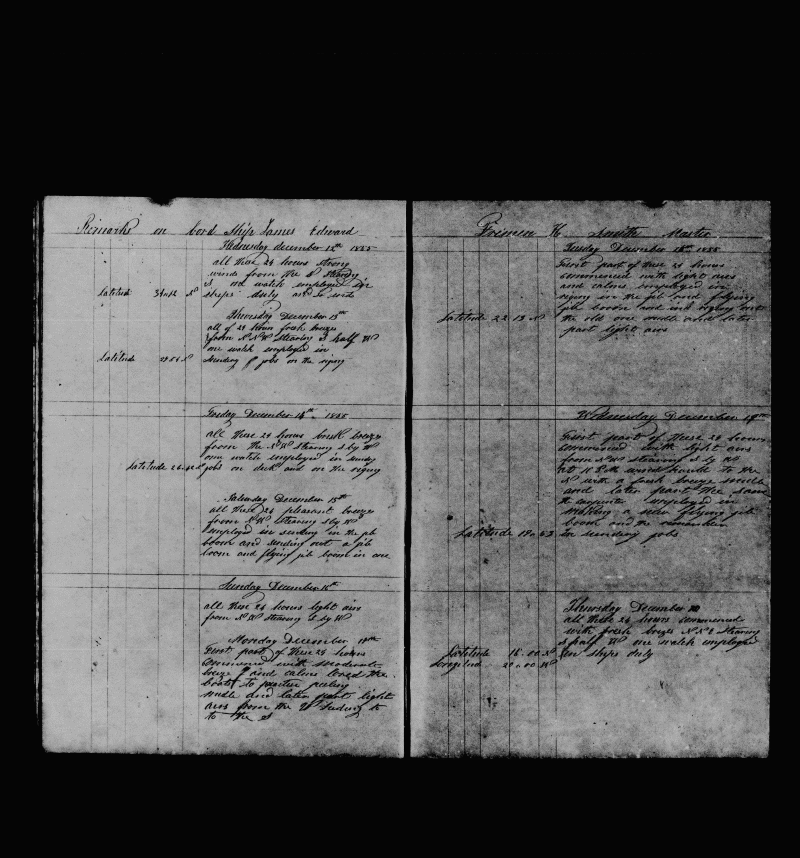 Remarks on bord Ship James Edward
Wednesday december 12th 1855
all these 24 hours strong
winds from the N Stearing
S one watch employed in
Latitude 34 N ships duly and so ends
Thursday December 13th
all of 24 hours fresh breeze
from N N W Stearing S half W
one watch employed in
Latitude 29 56 N Sundry jobs on the riging
Friday December 14th 1855
all these 24 hours brisk breeze
from the N W Stearing S by W
one watch employed in sundry
Latitude 26 42 N jobs on deck and on the riging
Saturday December 15th
all these 24 pleasant breeze
from N W Stearing S by W
employed in sending in the jib
boom and sending out a jib
boom and flying jib boom in one
Sunday December 16th
all these 24 hours light airs
from N W stearing S by W
Monday December 17th
First part of these 24 hours
commenced with moderate
breeze and calms lowed the
boats to practice pulling
midle and later part light
airs from the heding to
to the S
H Smith Master
Tuesday December 18th 1855
First part of these 24 hours
commenced with light airs
and calms employed in
riging in the jib and flying
jib boom and riging out
Latitude 22 13 N the old one midle and later
part light airs
Wednesday December 19th
First part of these 24 hours
commenced with light airs
from N W stearing S by W
at 12 the wind hauld to the
N with a fresh breeze midle
and later part the same
the carpenter employed in
making a new flying jib
boom and the remainder
Latitude 19 53 in sundry jobs
Thursday December 20
all these 24 hours commenced
with fresh brezes N N E stearing
S half W one watch employed
Latitude 16 00 N on ships duly
Longitude 29 00 W